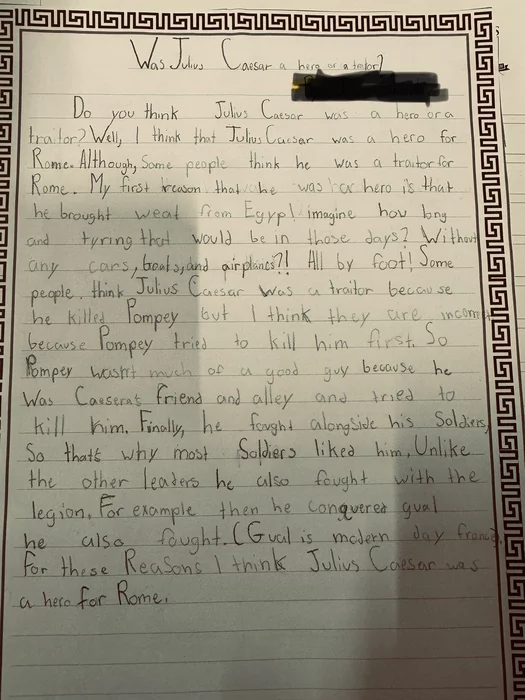 Was Julius Caesar a hero or a traitor?
Do you think Julius Caesar was a hero or a
traitor? Well, I think that Julius Caesar was a hero for
Rome. Although, Some people think he was a traitor for
Rome. My first reason that he was a hero is that
he brought weat from Egypt! imagine how long
and tyring that would be in those days? Without
any cars, boats, and airplants?! All by foot! Some
people think Julius Caesar was a traitor because
he killed Pompey but I think they are incorrect
because Pompey tried to kill him first. So
Pompey wasn't much of a good guy because he
was Caeseras friend and alley and tried to
kill him. Finally, he fought alongside his Soldiers,
So thats why most Soldiers liked him, Unlike
the other leaders he also fought with the
legion. For example then he conquered gual
he also fought. (Gual is modern day france.
For these Reasons I think Julius Caesar was
a hero for Rome.